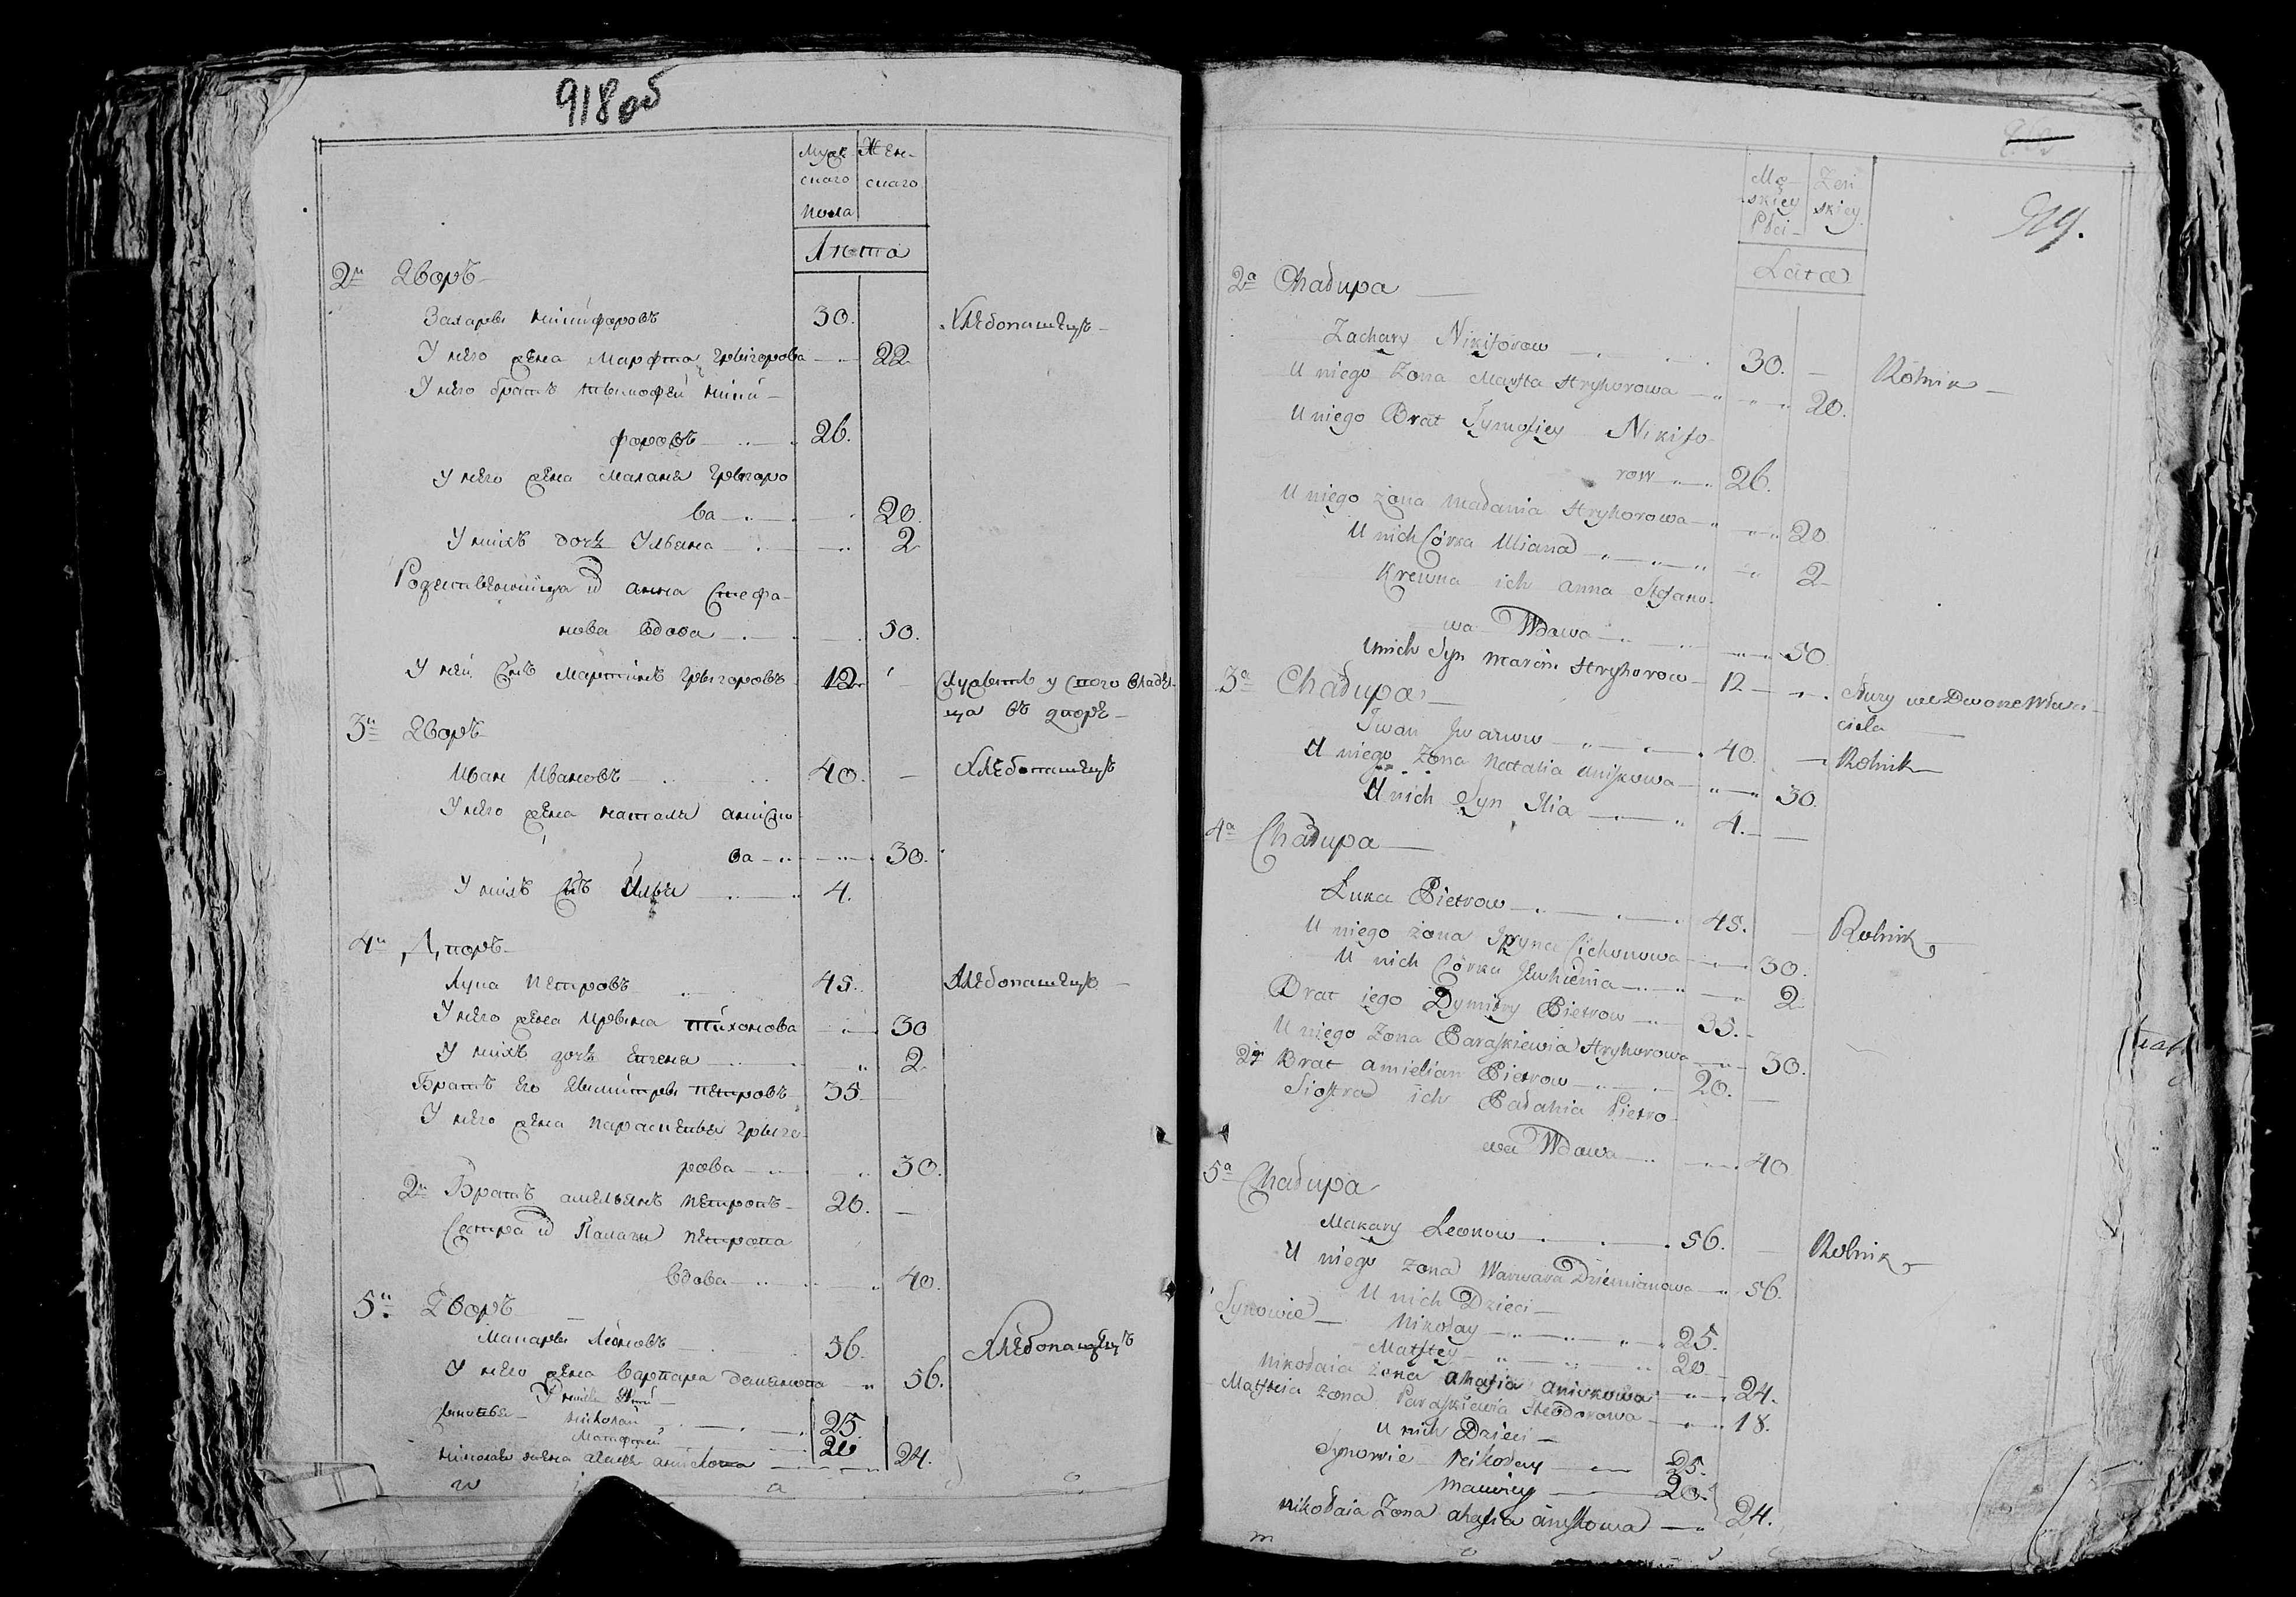 918 об
Муж- Жен-
скаго скаго
пола
Лѣта
2й Дворъ
Захаръ Никифоровъ 30. Хлебопашецъ
У него жена Марфта Грыгорова 22
У него братъ Тымофей Ники-
форовъ 26.
У него жена Маланя Грыгоро
ва 20.
У нихъ дочь Ульяна 2
Родственница их анна Стефа-
нова вдова 50.
У ней Сынъ Мартинъ Грыгоровъ 12 Служитъ у Сего Владѣл-
ца въ дворе
3й Дворъ
Иван Ивановъ 40. Хлебопашецъ
У него жена наталя аниско
ва 30.
У нихъ Сынъ Илья 4.
4й Дворъ
Лука Петровъ 45. Хлебопашецъ
У него жена Ирына Тихонова 30
У нихъ дочь Евгеня 2
Братъ Его Дмитры Петровъ 35.
У него жена Параскевья Грыго-
рова 30.
2й Братъ амельянъ Петровъ 20.
Сестра их Палагея Петрова
вдова 40.
5й Дворъ
Макаръ Леоновъ 56. Хлебопашецъ
У него жена Варвара демянова 56.
У нихъ Дети
Николай 25.
Матфей 20
николая жена анискова 24.
Mę- Żeń
skiey skiey.
Płci
919.
Lata
2a Chałupa
Zachary Nikiforow 30. Rolnik
U niego Zona Marfta Hryhorowa 20.
U niego Brat Tymofiey Nikifo-
row 26.
U niego żona Małania Hryhorowa 20
U nich Córka Uliana 2
Krewna ich anna Stefano-
wa Wdowa 50
U nich Syn Marcin Hryhorow 12 Służy we Dworze Właści-
ciela
3a Chałupa
Iwan Iwanow 40. Rolnik
U niego Zona Natalia Aniskowa 30.
U nich Syn Ilia 4.
4a Chałupa
Łuka Pietrow 45. Rolnik
U niego żona Iryna Cichonowa 30.
U nich Córka Jewhienia 2
Brat iego Dymitry Pietrow 35.
U niego Zona Paraskiewia Hryhorowa 30.
2gi Brat amielian Pietrow 20.
Siostra ich Pałahia Pietro-
wa Wdowa 40
5a Chałupa
Makary Leonow 56. Rolnik
U niego zona Warwara Dziemianowa 56.
U nich Dzieci
Synowie Nikołay 25.
Matfiey 20
Nikołaia zona ahafia aniskowa 24.
Matfieia zona Paraskiewia Heodorowa 18.
U nich Dzieci
Synowie Nikołay 25.
20.
nikołaia Zona ahafia aniskowa 24.